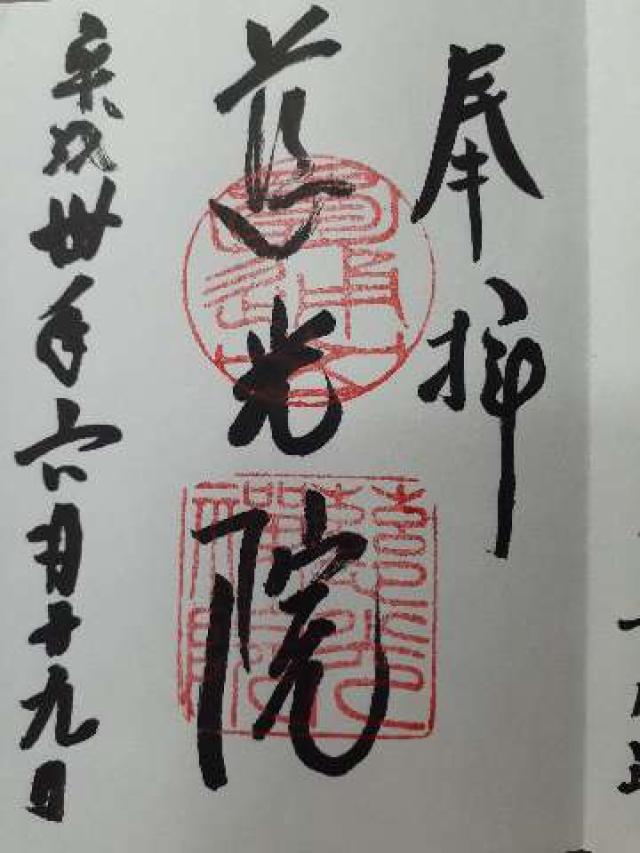 奉拝
慈光院
平成卅年六月十九日